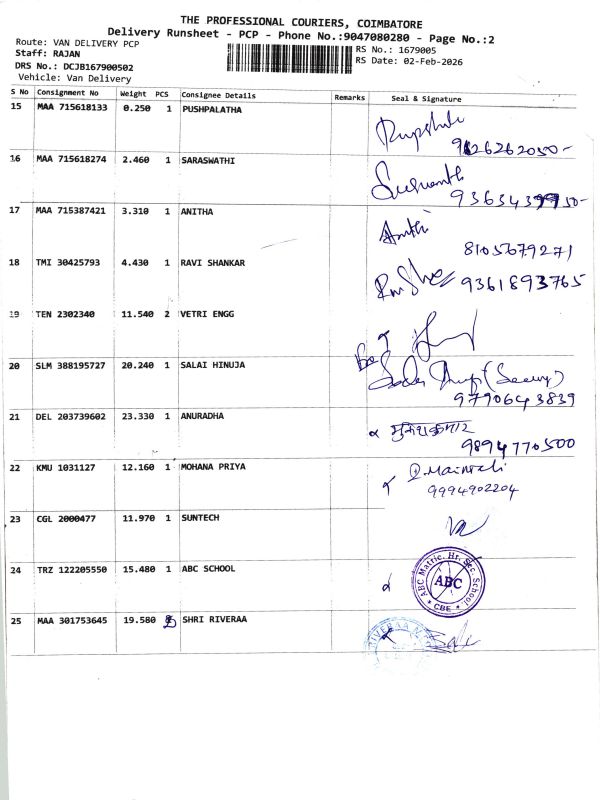 THE PROFESSIONAL COURIERS, COIMBATORE
Delivery Runsheet - PCP - Phone No.:9047080280 - Page No.:2
Route: VAN DELIVERY PCP
Staff: RAJAN
DRS No.: DCJB167900502
Vehicle: Van Delivery
RS No.: 1679005
RS Date: 02-Feb-2026
S No Consignment No Weight PCS Consignee Details Remarks Seal & Signature
15 MAA 715618133 0.250 1 PUSHPALATHA
9626262050-
16 MAA 715618274 2.460 1 SARASWATHI
17 MAA 715387421 3.310 1 ANITHA
8105679271
18 TMI 30425793 4.430 1 RAVI SHANKAR
9361893765
19 TEN 2302340 11.540 2 VETRI ENGG
20 SLM 388195727 20.240 1 SALAI HINUJA
9790643839
21 DEL 203739602 23.330 1 ANURADHA
9894770500
22 KMU 1031127 12.160 1 MOHANA PRIYA
9994902204
23 CGL 2000477 11.970 1 SUNTECH
24 TRZ 122205550 15.480 1 ABC SCHOOL
ABC Matric. Hr. Sec. School
ABC
* CBE *
25 MAA 301753645 19.580 SHRI RIVERAA